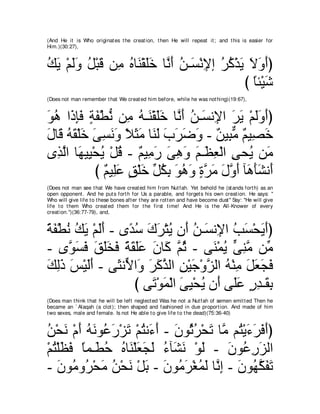 (And He it is Who originates the creation, then He will repeat it; and this is easier for Him.)(30:27),
(أَوَلاَ يَذْكُرُ الإِنْسَـنُ أَنَّا خَلَقْنَاهُ مِن قَبْلُ وَلَمْ يَكُ
شَيْئاً )
(Does not man remember that We created him before, while he was nothing)(19:67),
(أَوَلَمْ يَرَ الإِنسَـنُ أَنَّا خَلَقْنَـهُ مِن نُّطْفَةٍ فَإِذَا هُوَ
خَصِيمٌ مُّبِينٌ - وَضَرَبَ لَنَا مَثَلاً وَنَسِىَ خَلْقَهُ قَالَ
مَن يُحىِ الْعِظَـمَ وَهِىَ رَمِيمٌ - قُلْ يُحْيِيهَا الَّذِى
أَنشَأَهَآ أَوَّلَ مَرَّةٍ وَهُوَ بِكُلِّ خَلْقٍ عَلِيمٌ )
(Does not man see that We have created him from Nutfah. Yet behold he (stands forth) as an open opponent. And he puts forth for Us a parable, and forgets his own creation. He says: " Who will give life to these bones after they are rotten and have become dust" Say: "He will give life to them Who created them for the first time! And He is the All-Knower of every creation.")(36:77-79), and,
(أَيَحْسَبُ الإِنسَـنُ أَن يُتْرَكَ سُدًى - أَلَمْ يَكُ نُطْفَةً
مِّن مَّنِىٍّ يُمْنَى - ثُمَّ كَانَ عَلَقَةً فَخَلَقَ فَسَوَّى -
فَجَعَلَ مِنْهُ الزَّوْجَيْنِ الذَّكَرَ وَالأُنثَى - أَلَيْسَ ذَلِكَ
بِقَـدِرٍ عَلَى أَن يُحْيِىَ الْمَوْتَى )
(Does man think that he will be left neglected Was he not a Nutfah of semen emitted Then he became an `Alaqah (a clot); then shaped and fashioned in due proportion. And made of him two sexes, male and female. Is not He able to give life to the dead)(75:36-40)
(أَفَرَءَيْتُم مَّا تَحْرُثُونَ - أَءَنتُمْ تَزْرَعُونَهُ أَمْ نَحْنُ
الزَرِعُونَ - لَوْ نَشَآءُ لَجَعَلْنَاهُ حُطَـماً فَظَلْتُمْ
تَفَكَّهُونَ - إِنَّا لَمُغْرَمُونَ - بَلْ نَحْنُ مَحْرُومُونَ -